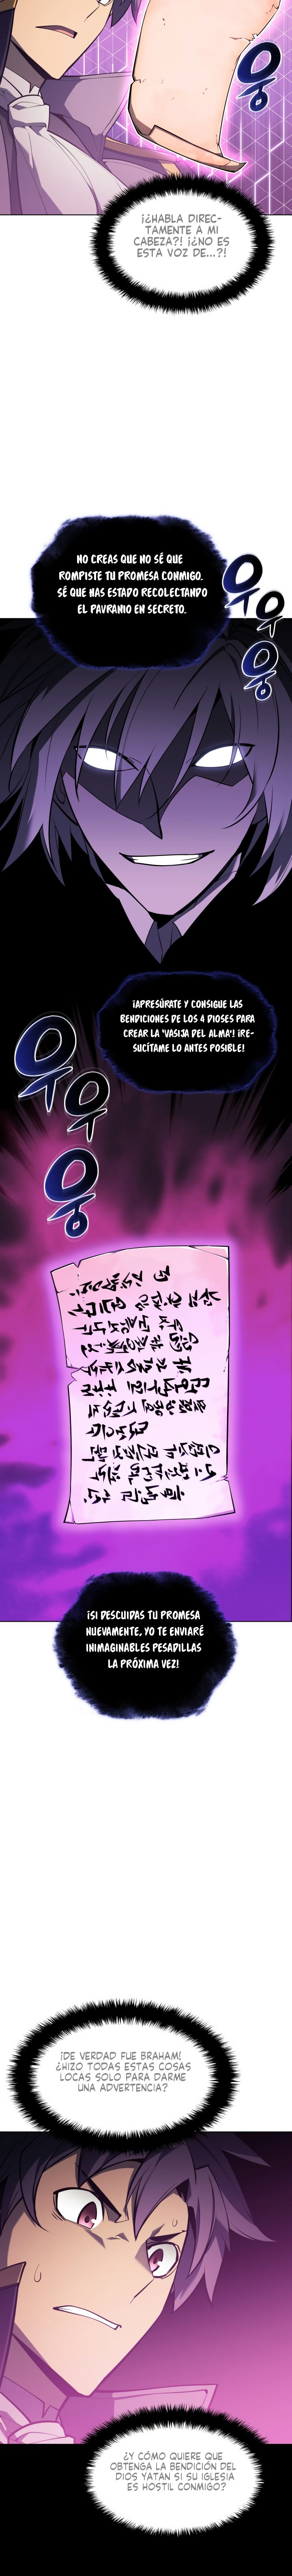 웅
¡¿HABLA DIREC-
TAMENTE A MI
CABEZA?! ¡¿NO ES
ESTA VOZ DE...?!
NO CREAS QUE NO SÉ QUE
ROMPISTE TU PROMESA CONMIGO.
SÉ QUE HAS ESTADO RECOLECTANDO
EL PAVRANIO EN SECRETO.
우
우
웅
¡APRESÚRATE Y CONSIGUE LAS
BENDICIONES DE LOS 4 DIOSES PARA
CREAR LA 'VASIJA DEL ALMA'! ¡RE-
SUCÍTAME LO ANTES POSIBLE!
우
우
웅
¡SI DESCUIDAS TU PROMESA
NUEVAMENTE, YO TE ENVIARÉ
INIMAGINABLES PESADILLAS
LA PRÓXIMA VEZ!
¡DE VERDAD FUE BRAHAM!
¿HIZO TODAS ESTAS COSAS
LOCAS SOLO PARA DARME
UNA ADVERTENCIA?
¿Y CÓMO QUIERE QUE
OBTENGA LA BENDICIÓN DEL
DIOS YATAN SI SU IGLESIA
ES HOSTIL CONMIGO?